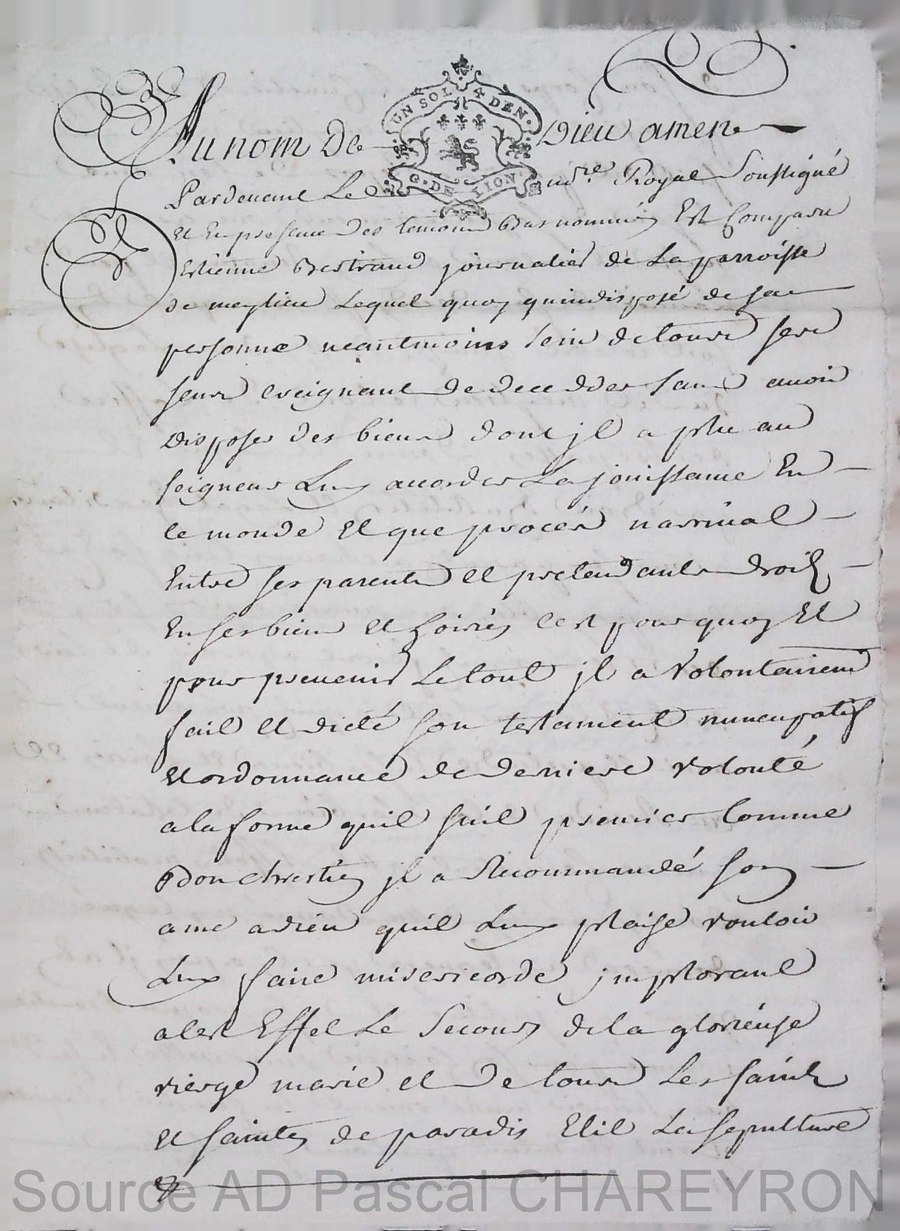 UN SOL 4 DEN.
G. DE LION
Au nom de Dieu amen
Pardevant Le no re Royal Soussigné
et En presence des temoins bas nommés Est Comparu
Estienne Bertrand journalier de La parroisse
de meylieu Lequel quoy quindisposé de sa
personne neantmoins sain de tous ses
sens craignant de decedder sans avoir
disposer des biens dont jl a plu au
seigneur Luy accorder La jouissance En
ce monde Et que procés narrivat
Entre ses parents et pretendants droit
En ses biens et hoiries cest pour quoy Et
pour prevenir Le tout jl a volontairemt
fait et dicté son testament nuncupatif
et ordonnance de derniere volonté
a la forme quil suit premier comme
bon chrestien jl a Recommandé son
ame a dieu quil Luy plaise vouloir
Luy faire misericorde jmplorant
a cest Effet Le Secours de la glorieuse
vierge marie et de tous Les saints
et saintes de paradis Elit La sepulture
Source AD Pascal CHAREYRON